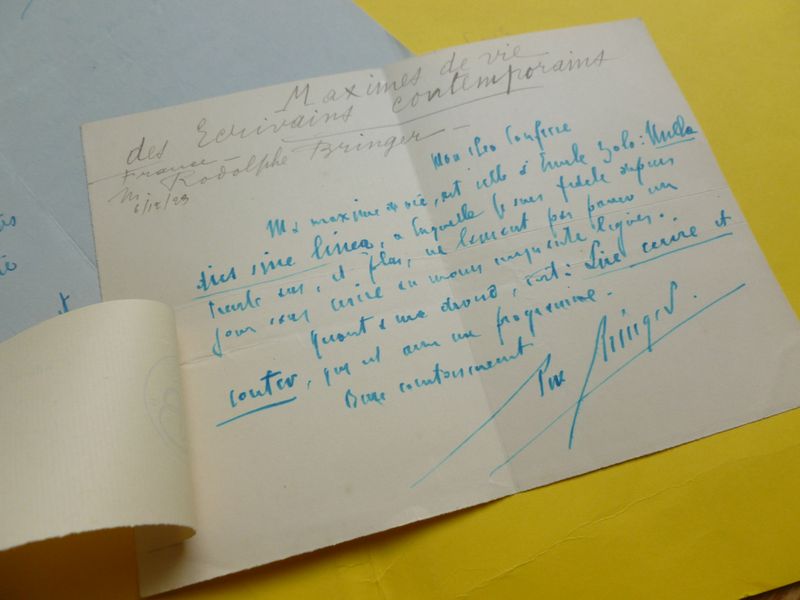 Maximes de vie
des Ecrivains contemporains
France —
M. Rodolphe Bringer —
6/12/23
Mon cher Confrère
Ma maxime de vie, est celle d'Emile Zola: Nulla
dies sine linea, à laquelle je suis fidèle depuis
trente ans, et plus, ne laissant pas passer un
jour sans écrire au moins cinquante lignes.
Quant à ma , c'est: Sine cura et
, qui est aussi un programme.
Bien courtoisement
Bringer.